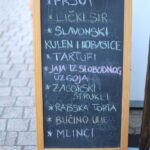 * PRŠUT
* LIČKI SIR
* SLAVONSKI
KULEN I KOBASICE
* TARTUFI
* JAJA IZ SLOBODNOG
UZGOJA
* ZAGORSKI
ŠTRUKLI
* RAPSKA TORTA
* BUČINO ULJE
* MLINCI